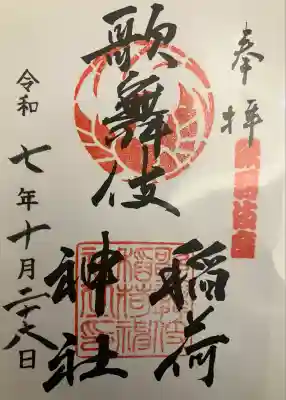 奉拝
歌舞伎座
歌舞伎
稲荷
神社
令和七年十月二十八日